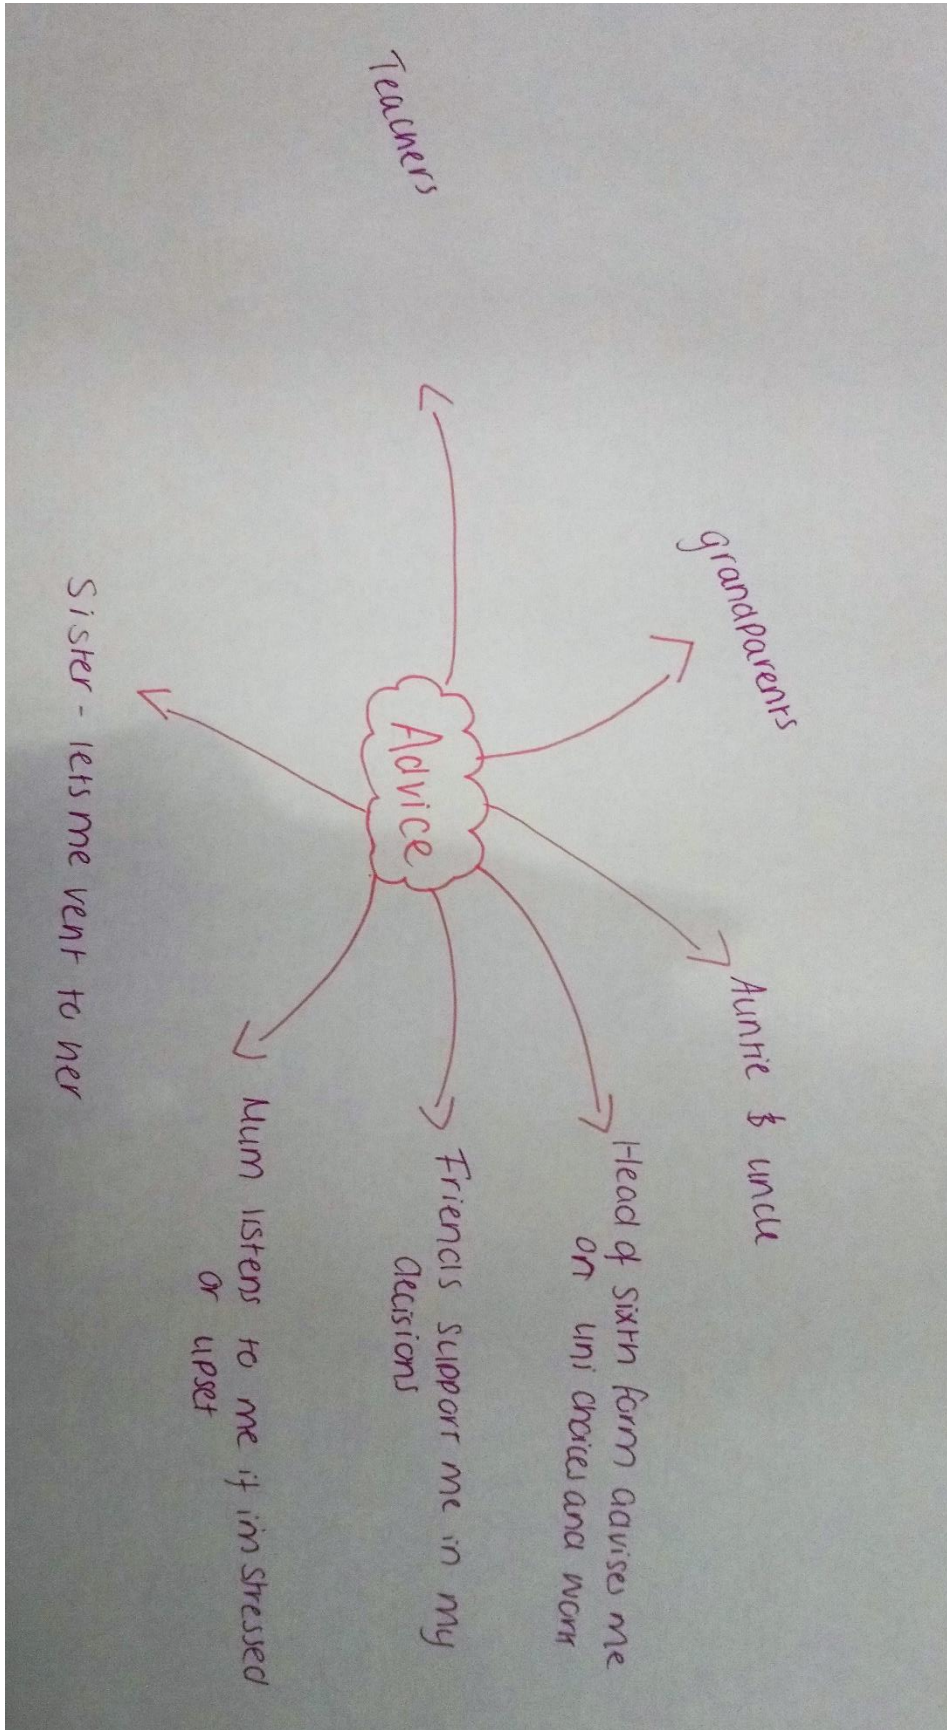 Teachers
grandparents
Auntie & uncle
Advice
Head of Sixth form advises me
on uni choices and work
Friends support me in my
decisions
Mum listens to me if i'm stressed
or upset
Sister - lets me vent to her